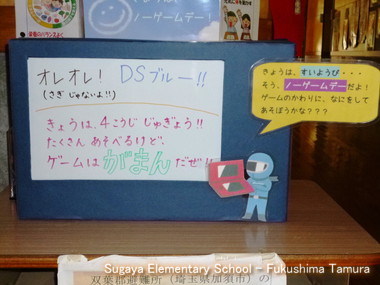 ノーゲームデー!
オレオレ! DSブルー!!
(さぎじゃないよ!!)
きょうは、4こうじじゅぎょう!!
たくさんあそべるけど、
ゲームはがまんだぜ!!
きょうは、すいようび・・・
そう、ノーゲームデーだよ!
ゲームのかわりに、なにをして
あそぼうかな???
双葉郡避難所(埼玉県加須市)の
Sugaya Elementary School - Fukushima Tamura